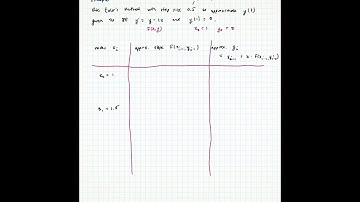 Use Euler's method with step size 0.5 to approximate y(
given the DE y' = y - and y(1) = 0.
F(x,y) x₀ = 1 y₀ = 0
approx. slope F(xᵢ₋₁, yᵢ₋₁) approx. yᵢ
= yᵢ₋₁ + F(xᵢ₋₁, yᵢ₋₁)
x₀ = 1
x₁ = 1.5